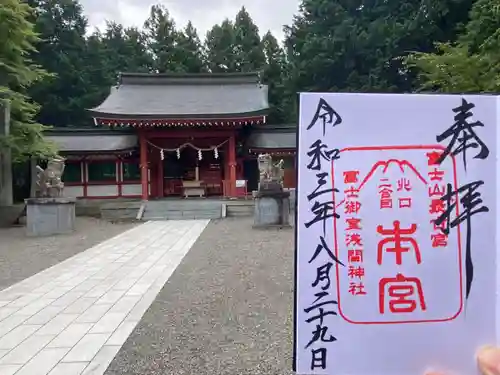 奉拝
富士山最古宮
北口
二合目
本宮
富士御室浅間神社
令和三年八月二十九日